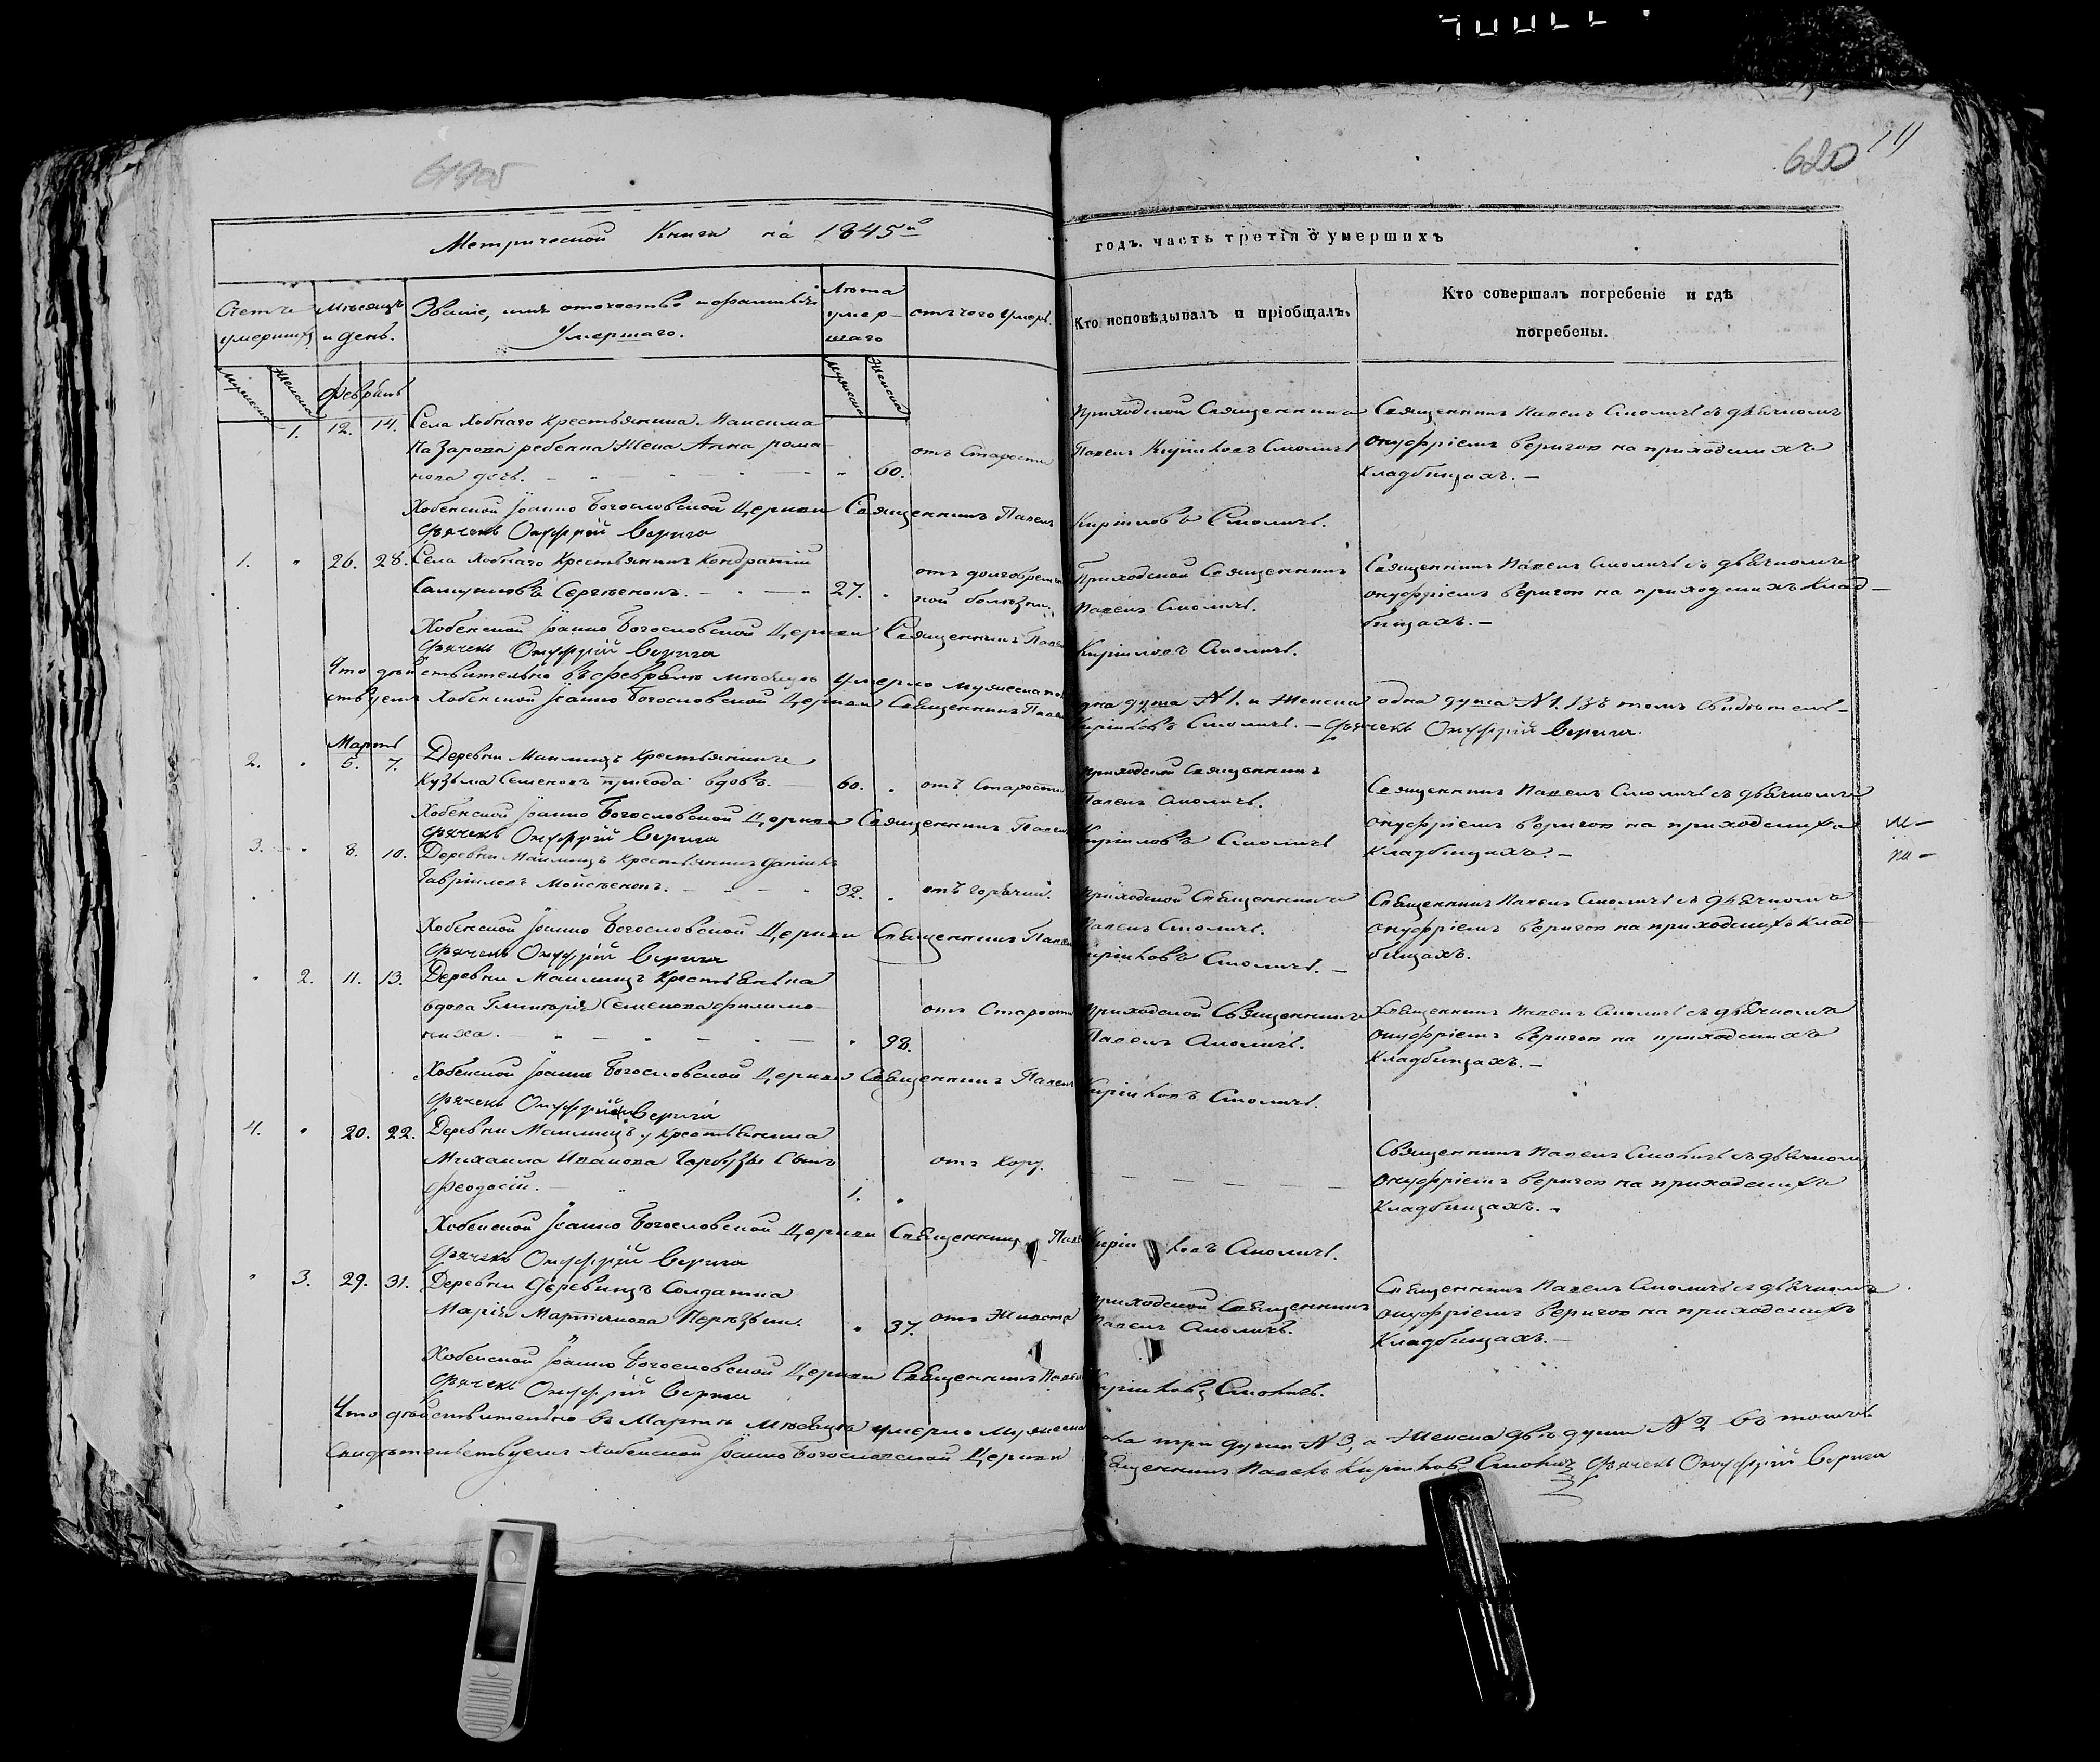 620
Метрической Книги на 1845й
годъ. часть третія о умершихъ
Счетъ умершихъ
Мѣсяцъ и день.
Званіе, имя отчество и фамилія Умершаго.
Лѣта умер-шаго
отъ чего умеръ.
Кто исповѣдывалъ и пріобщалъ.
Кто совершалъ погребеніе и гдѣ
погребены.
Мужеска
Женска
Мужеска
Женска
Февраль
1. 12. 14. Села Хобнаго Крестьянина Максима
Назарова жена Анна Рома-
нова дочь. 60. отъ Старости
Приходской Священникъ
Павелъ Кириловъ Смоличъ
Священникъ Павелъ Смоличъ съ дьячкомъ
Онуфріемъ Веригою на приходскихъ
кладбищахъ. —
Хобенской Іоанно Богословской Церкви Священникъ Павелъ Кириловъ Смоличъ.
Дьячекъ Онуфрій Верига
1. 26. 28. Села Хобнаго Крестьянинъ Кондратій
Самуиловъ Сергѣенокъ. 27. отъ долговремен
ной болѣзни.
Приходской Священникъ
Павелъ Смоличъ.
Священникъ Павелъ Смоличъ съ дьячкомъ
Онуфріемъ Веригою на приходскихъ клад-
бищахъ. —
Хобенской Іоанно Богословской Церкви Священникъ Павелъ Кириловъ Смоличъ.
Дьячекъ Онуфрій Верига
Что дѣйствительно въ Февралѣ мѣсяцѣ умерло мужеска одна душа N 1. и женска одна душа N 1. въ томъ свидѣтель-
ствуемъ Хобенской Іоанно Богословской Церкви Священникъ Павелъ Кириловъ Смоличъ. — Дьячекъ Онуфрій Верига.
Мартъ
2. 5. 7. Деревни Маклищъ Крестьянинъ
Кузьма Семеновъ Пригода вдовъ. 60. отъ Старости
Приходской Священникъ
Павелъ Смоличъ.
Священникъ Павелъ Смоличъ съ дьячкомъ
Онуфріемъ Веригою на приходскихъ
кладбищахъ. —
Хобенской Іоанно Богословской Церкви Священникъ Павелъ Кириловъ Смоличъ
Дьячекъ Онуфрій Верига
3. 8. 10. Деревни Маклищъ Крестьянинъ Даніилъ
Гавріиловъ Мойсѣенокъ. 32. отъ горячки.
Приходской Священникъ
Павелъ Смоличъ.
Священникъ Павелъ Смоличъ съ дьячкомъ
Онуфріемъ Веригою на приходскихъ клад-
бищахъ.
Хобенской Іоанно Богословской Церкви Священникъ Павелъ Кириловъ Смоличъ. —
Дьячекъ Онуфрій Верига
2. 11. 13. Деревни Маклищъ Крестьянка
вдова Семенова Филимо-
ниха. 98. отъ Старости
Приходской Священникъ
Павелъ Смоличъ.
Священникъ Павелъ Смоличъ съ дьячкомъ
Онуфріемъ Веригою на приходскихъ
кладбищахъ. —
Хобенской Іоанно Богословской Церкви Священникъ Павелъ Кириловъ Смоличъ.
Дьячекъ Онуфрій Верига
4. 20. 22. Деревни Маклищъ у Крестьянина
Михаила Иванова сынъ
Феодосій. 1. отъ Кору.
Священникъ Павелъ Смоличъ съ дьячкомъ
Онуфріемъ Веригою на приходскихъ
кладбищахъ.
Хобенской Іоанно Богословской Церкви Священникъ Павелъ Кириловъ Смоличъ.
Дьячекъ Онуфрій Верига
3. 29. 31. Деревни Солдатка
Марія Мартинова 37. отъ Живота
Приходской Священникъ
Павелъ Смоличъ.
Священникъ Павелъ Смоличъ съ дьячкомъ
Онуфріемъ Веригою на приходскихъ
кладбищахъ. —
Хобенской Іоанно Богословской Церкви Священникъ Павелъ Кириловъ Смоличъ.
Дьячекъ Онуфрій Верига
Что дѣйствительно въ Мартѣ мѣсяцѣ умерло мужеска пола три души N 3, а женска двѣ души N 2 въ томъ
Свидѣтельствуемъ Хобенской Іоанно Богословской Церкви Священникъ Павелъ Кириловъ Смоличъ Дьячекъ Онуфрій Верига